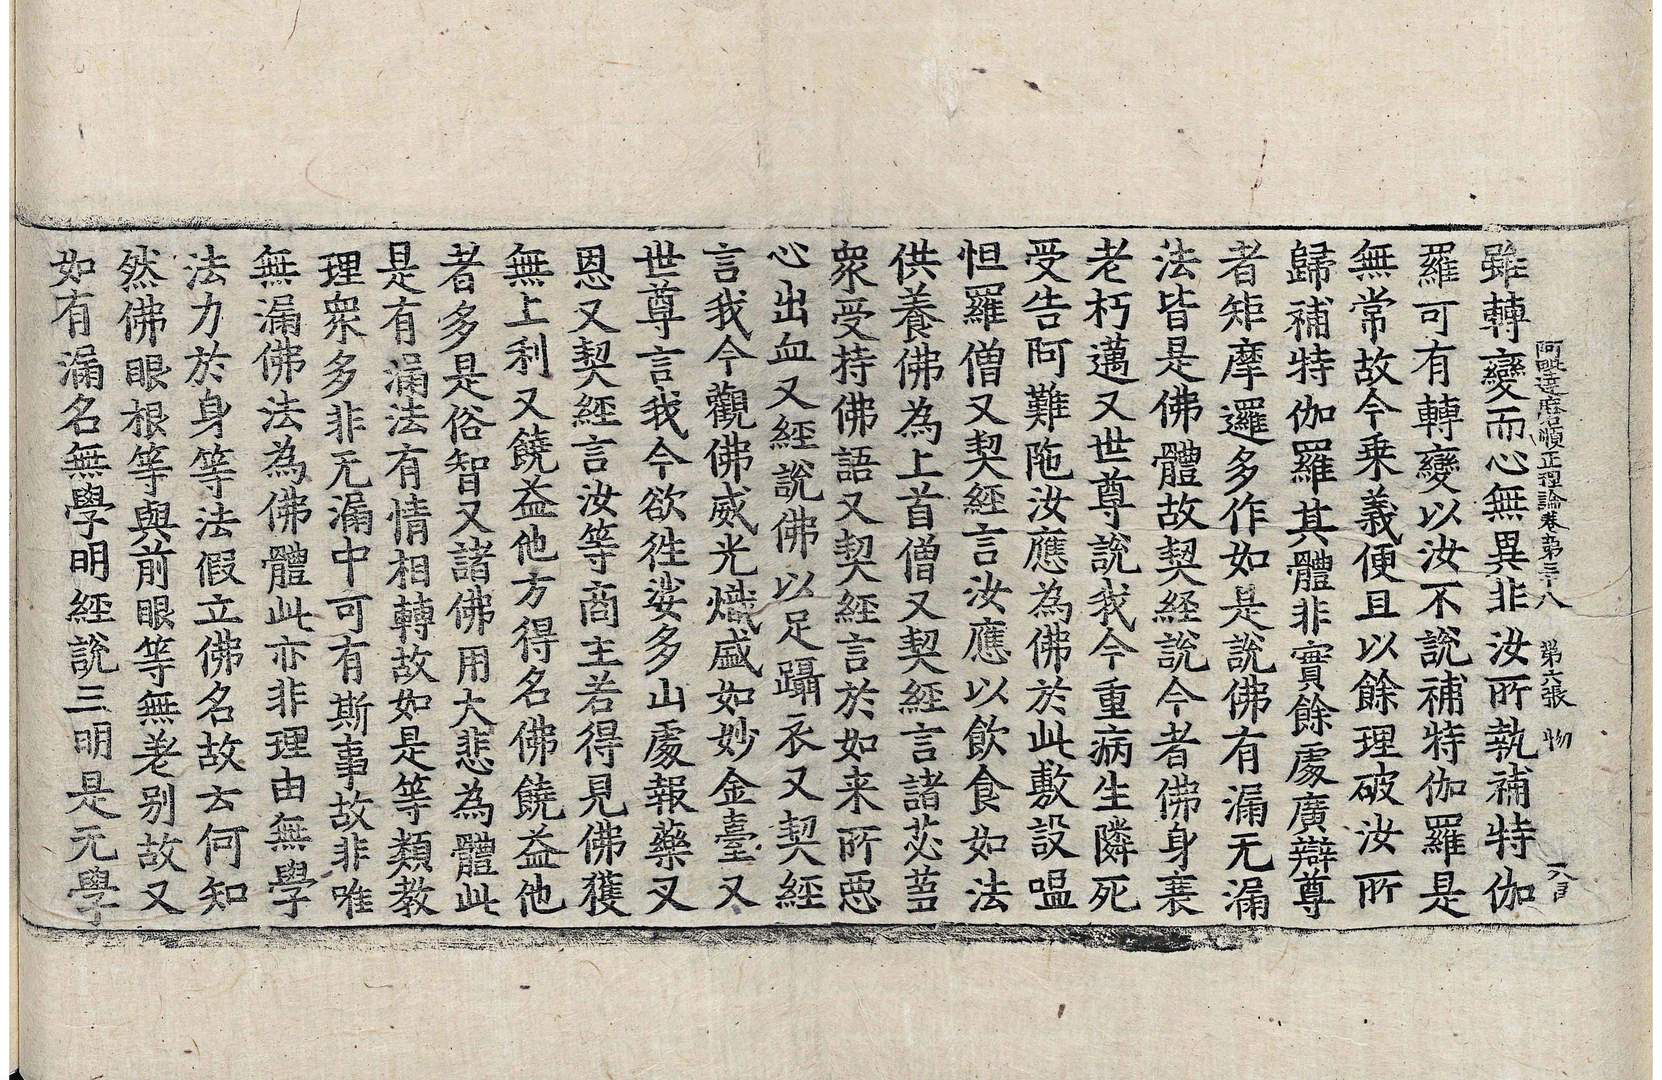 阿毗達磨順正理論卷第三十八 第六張 物
雖轉變而心無異非汝所執補特伽
羅可有轉變以汝不說補特伽羅是
無常故今乗義便且以餘理破汝所
歸補特伽羅其體非實餘處廣辯尊
者矩摩邏多作如是說佛有漏无漏
法皆是佛體故契経說今者佛身衰
老朽邁又世尊說我今重病生隣死
受告阿難陁汝應為佛於此敷設嗢
怛羅僧又契経言汝應以飲食如法
供養佛為上首僧又契経言諸苾芻
衆受持佛語又契経言於如来所惡
心出血又経說佛以足躡衣又契経
言我今觀佛威光熾盛如妙金臺又
世尊言我今欲往娑多山處報藥叉
恩又契経言汝等商主若得見佛獲
無上利又饒益他方得名佛饒益他
者多是俗智又諸佛用大悲為體此
是有漏法有情相轉故如是等類教
理衆多非无漏中可有斯事故非唯
無漏佛法為佛體此亦非理由無學
法力於身等法假立佛名故云何知
然佛眼根等與前眼等無差别故又
如有漏名無學明経說三明是无學